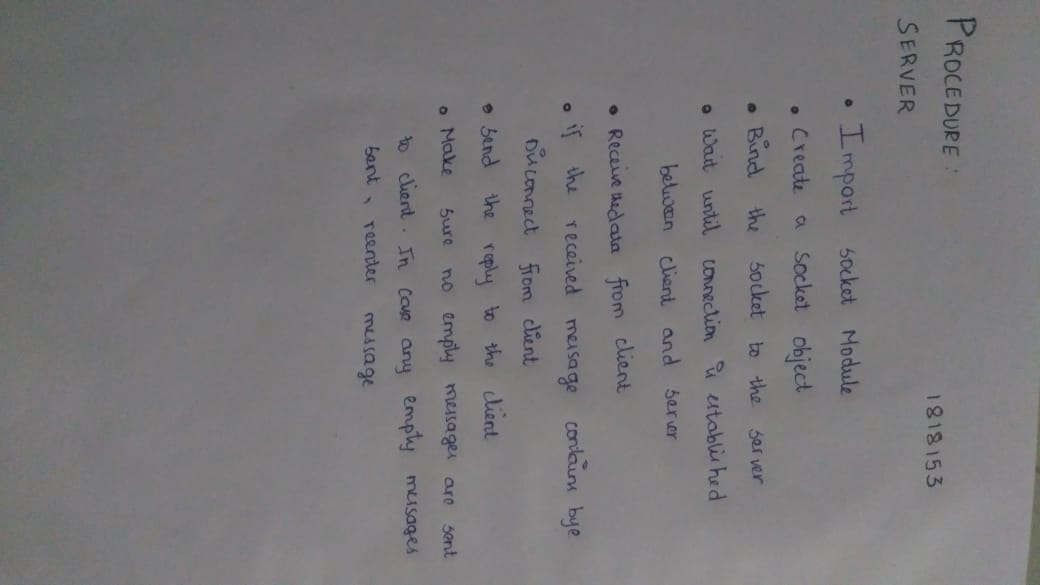 PROCEDURE:
1818153
SERVER
• Import socket Module
• Create a socket object
• Bind the socket to the server
• Wait until connection is established
between client and server
• Receive the data from client
• if the received message contains bye
Disconnect from client
• Send the reply to the client
• Make sure no empty messages are sent
to client. In case any empty messages
sent, reenter message